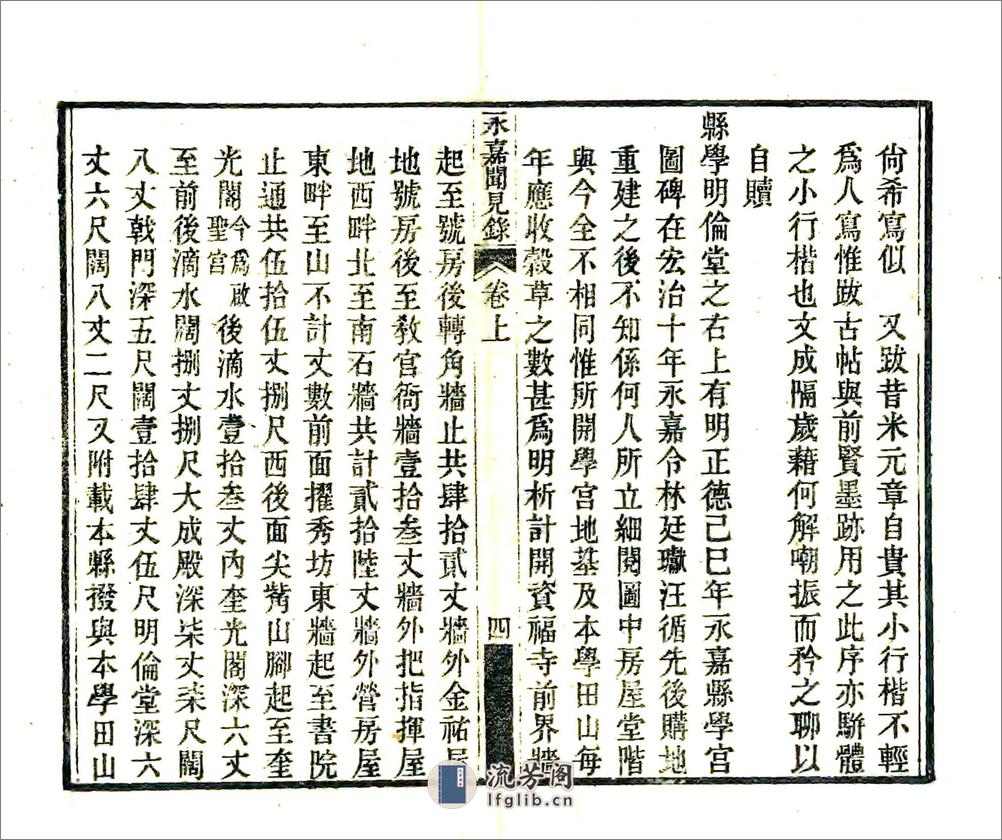 尙希寫似　又跋昔米元章自貴其小行楷不輕
爲人寫惟跋古帖與前賢墨跡用之此序亦駢體
之小行楷也文成隔歲藉何解嘲振而矜之聊以
自贖
縣學明倫堂之右上有明正德己巳年永嘉縣學宮
圖碑在宏治十年永嘉令林廷𤩽汪循先後購地
重建之後不知係何人所立細閱圖中房屋堂階
與今全不相同惟所開學宮地基及本學田山每
年應收穀草之數甚爲明析計開資福寺前界牆
永嘉聞見錄　卷上　四
起至號房後轉角牆止共肆拾貳丈牆外金祐屋
地號房後至敎官衙牆壹拾叁丈牆外把指揮屋
地西畔北至南石牆共計貳拾陸丈牆外營房屋
東畔至山不計丈數前面擢秀坊東牆起至書院
止通共伍拾伍丈捌尺西後面尖觜山腳起至奎
光閣今爲啟聖宮後滴水壹拾叁丈內奎光閣深六丈
至前後滴水闊捌丈捌尺大成殿深柒丈柒尺闊
八丈戟門深五尺闊壹拾肆丈伍尺明倫堂深六
丈六尺闊八丈二尺又附載本縣撥與本學田山
流芳閣
lfglib.cn